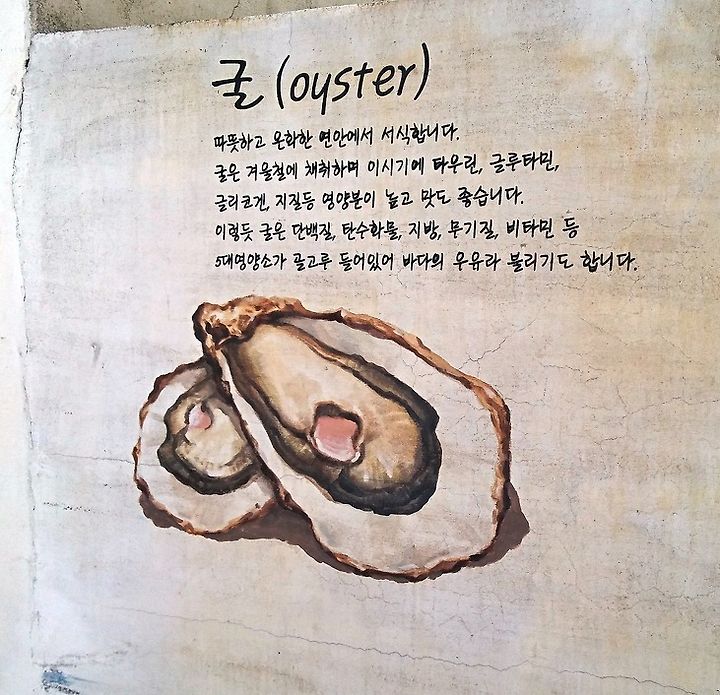 굴 (oyster)
따뜻하고 온화한 연안에서 서식합니다.
굴은 겨울철에 채취하며 이시기에 타우린, 글루타민,
글리코겐, 지질등 영양분이 높고 맛도 좋습니다.
이렇듯 굴은 단백질, 탄수화물, 지방, 무기질, 비타민 등
5대영양소가 골고루 들어있어 바다의 우유라 불리기도 합니다.